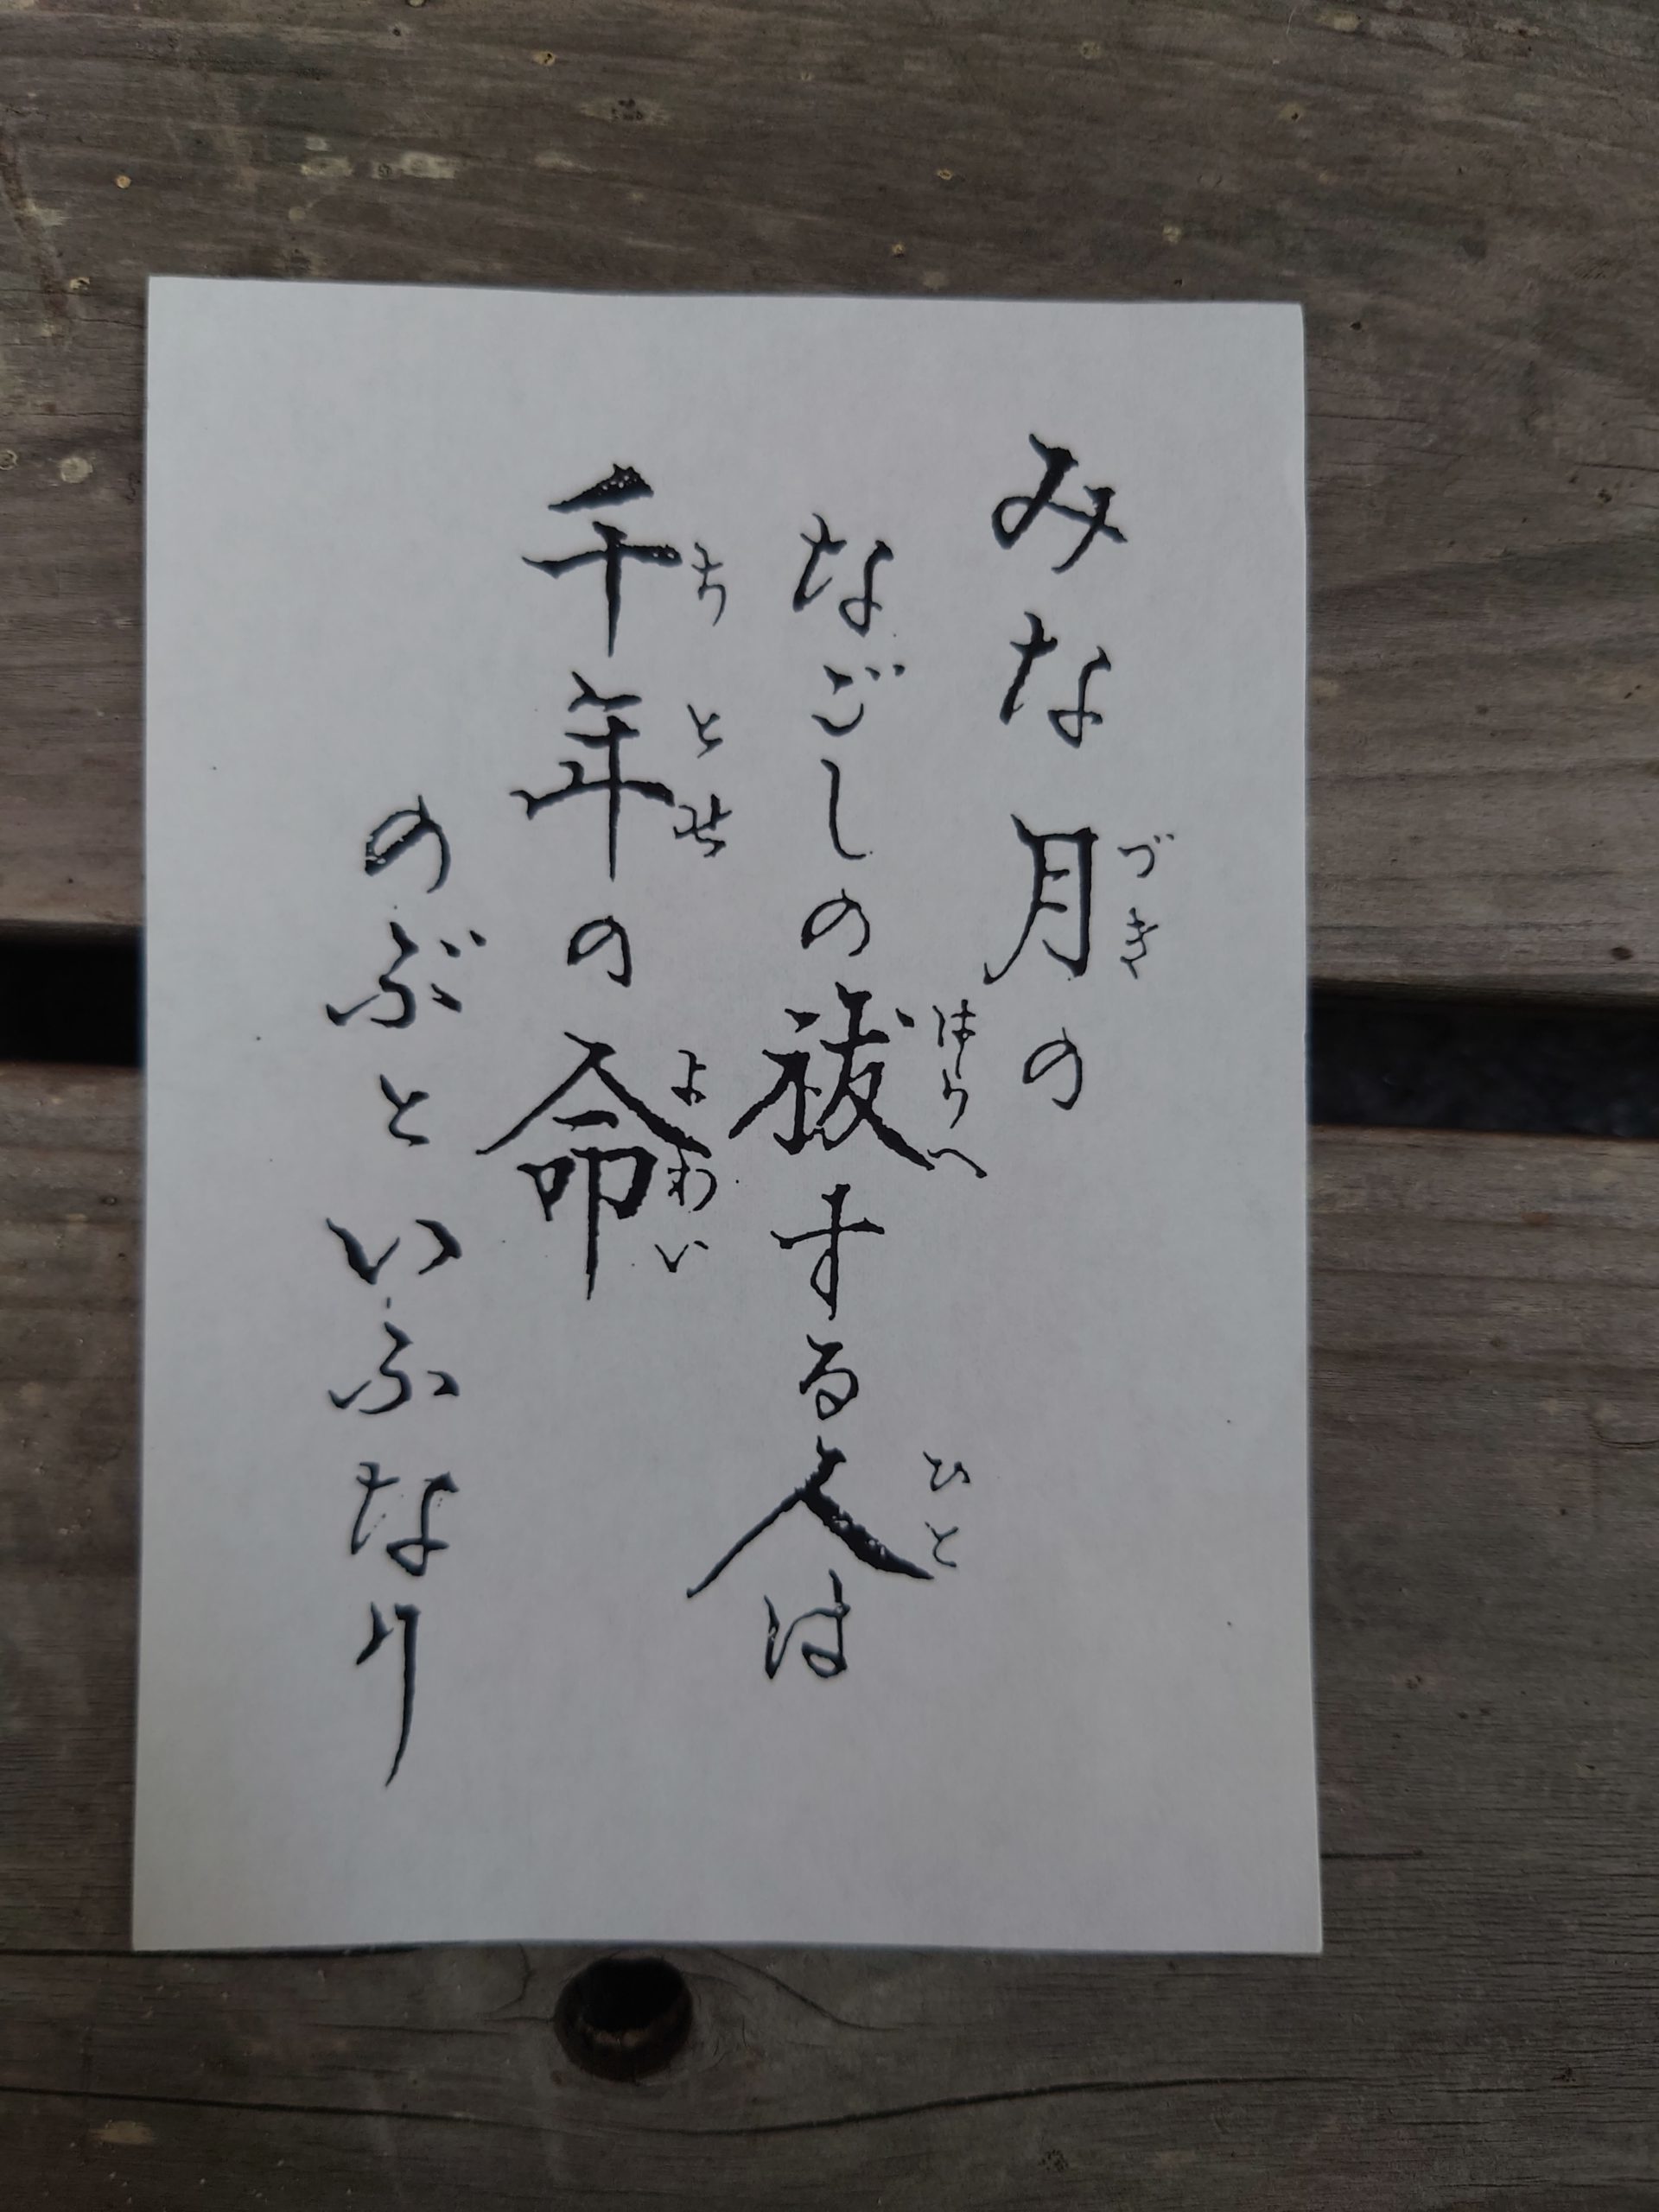 みな月の
づき
なごしの祓する人は
はらへ
ひと
千年の命
ちとせ
よわい
のぶといふなり